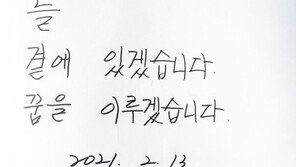 늘
곁에 있겠습니다.
꿈을 이루겠습니다.
2021. 2. 13